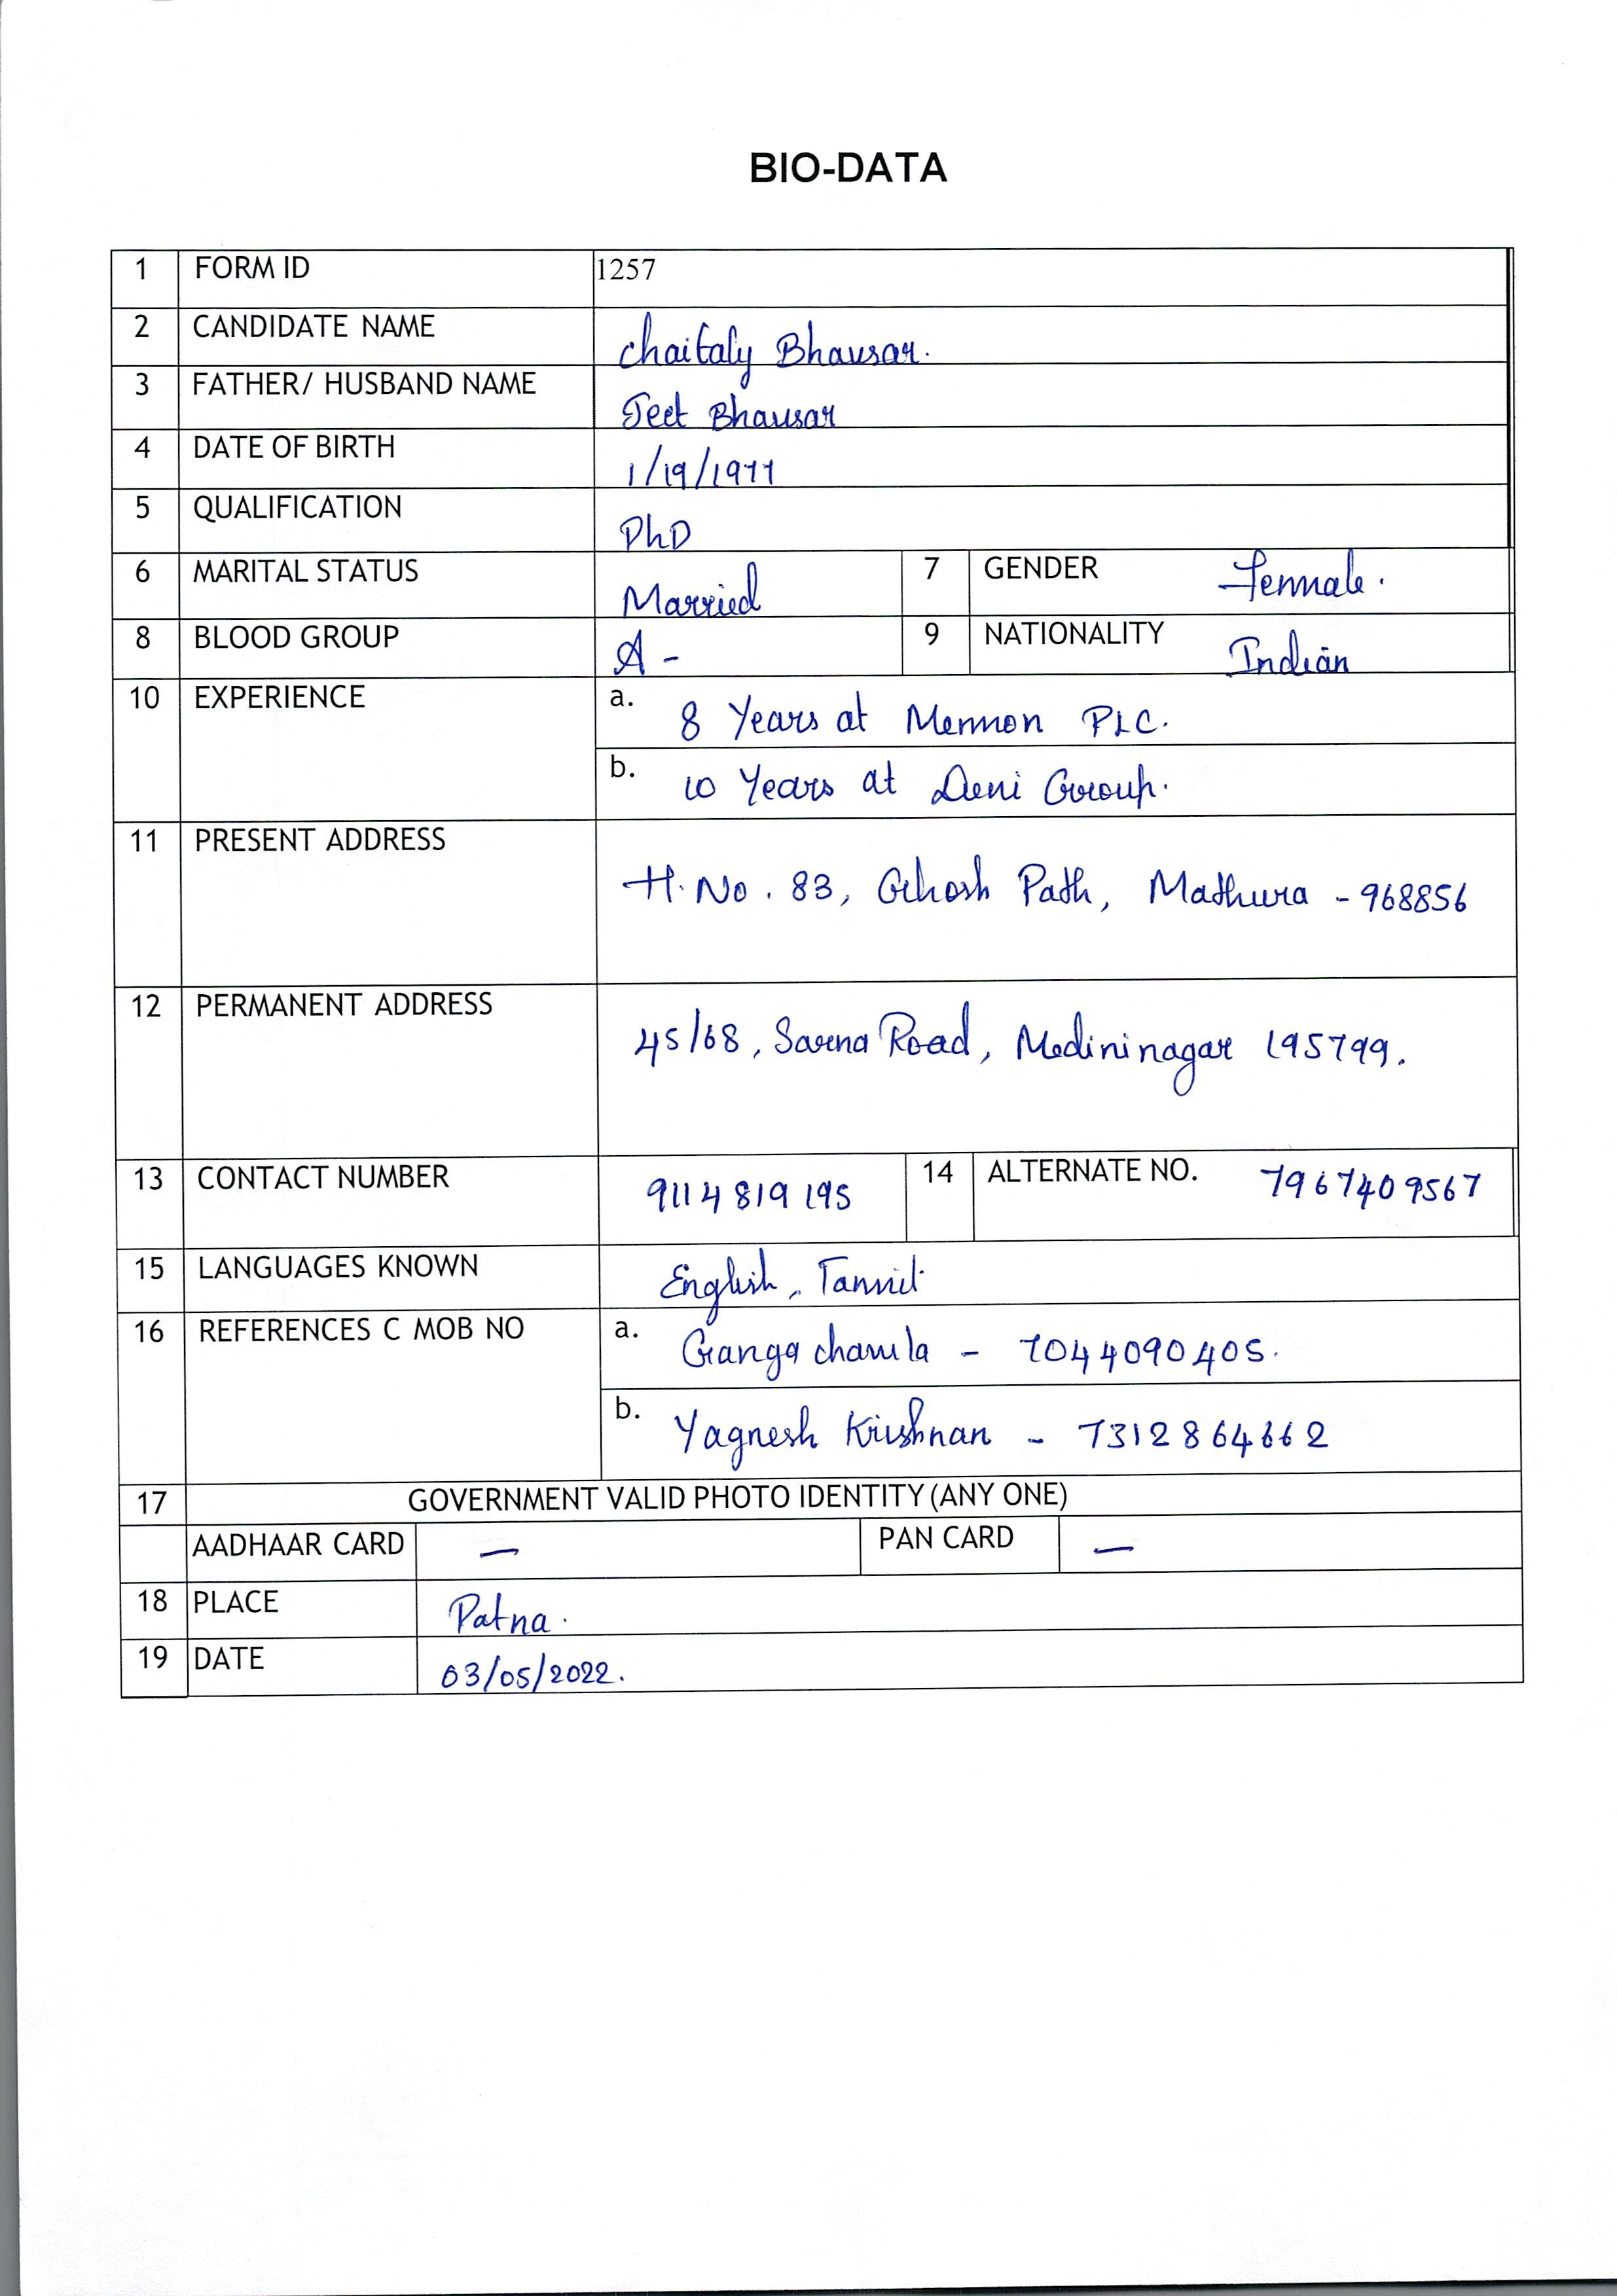 BIO-DATA
1 FORM ID 1257
2 CANDIDATE NAME Chaitaly Bhausar.
3 FATHER/ HUSBAND NAME Jeet Bhausar
4 DATE OF BIRTH 1/19/1977
5 QUALIFICATION PhD
6 MARITAL STATUS Married 7 GENDER Female.
8 BLOOD GROUP A- 9 NATIONALITY Indian
10 EXPERIENCE a. 8 Years at Memon PLC.
b. 10 Years at Deni Group.
11 PRESENT ADDRESS H.No. 83, Ghosh Path, Mathura - 968856
12 PERMANENT ADDRESS 45/68, Sarna Road, Medininagar 195799.
13 CONTACT NUMBER 9114819195 14 ALTERNATE NO. 7967409567
15 LANGUAGES KNOWN English, Tamil
16 REFERENCES C MOB NO a. Ganga chawla - 7044090405.
b. Yagnesh Krishnan - 7312864662
17 GOVERNMENT VALID PHOTO IDENTITY (ANY ONE)
AADHAAR CARD — PAN CARD —
18 PLACE Patna.
19 DATE 03/05/2022.